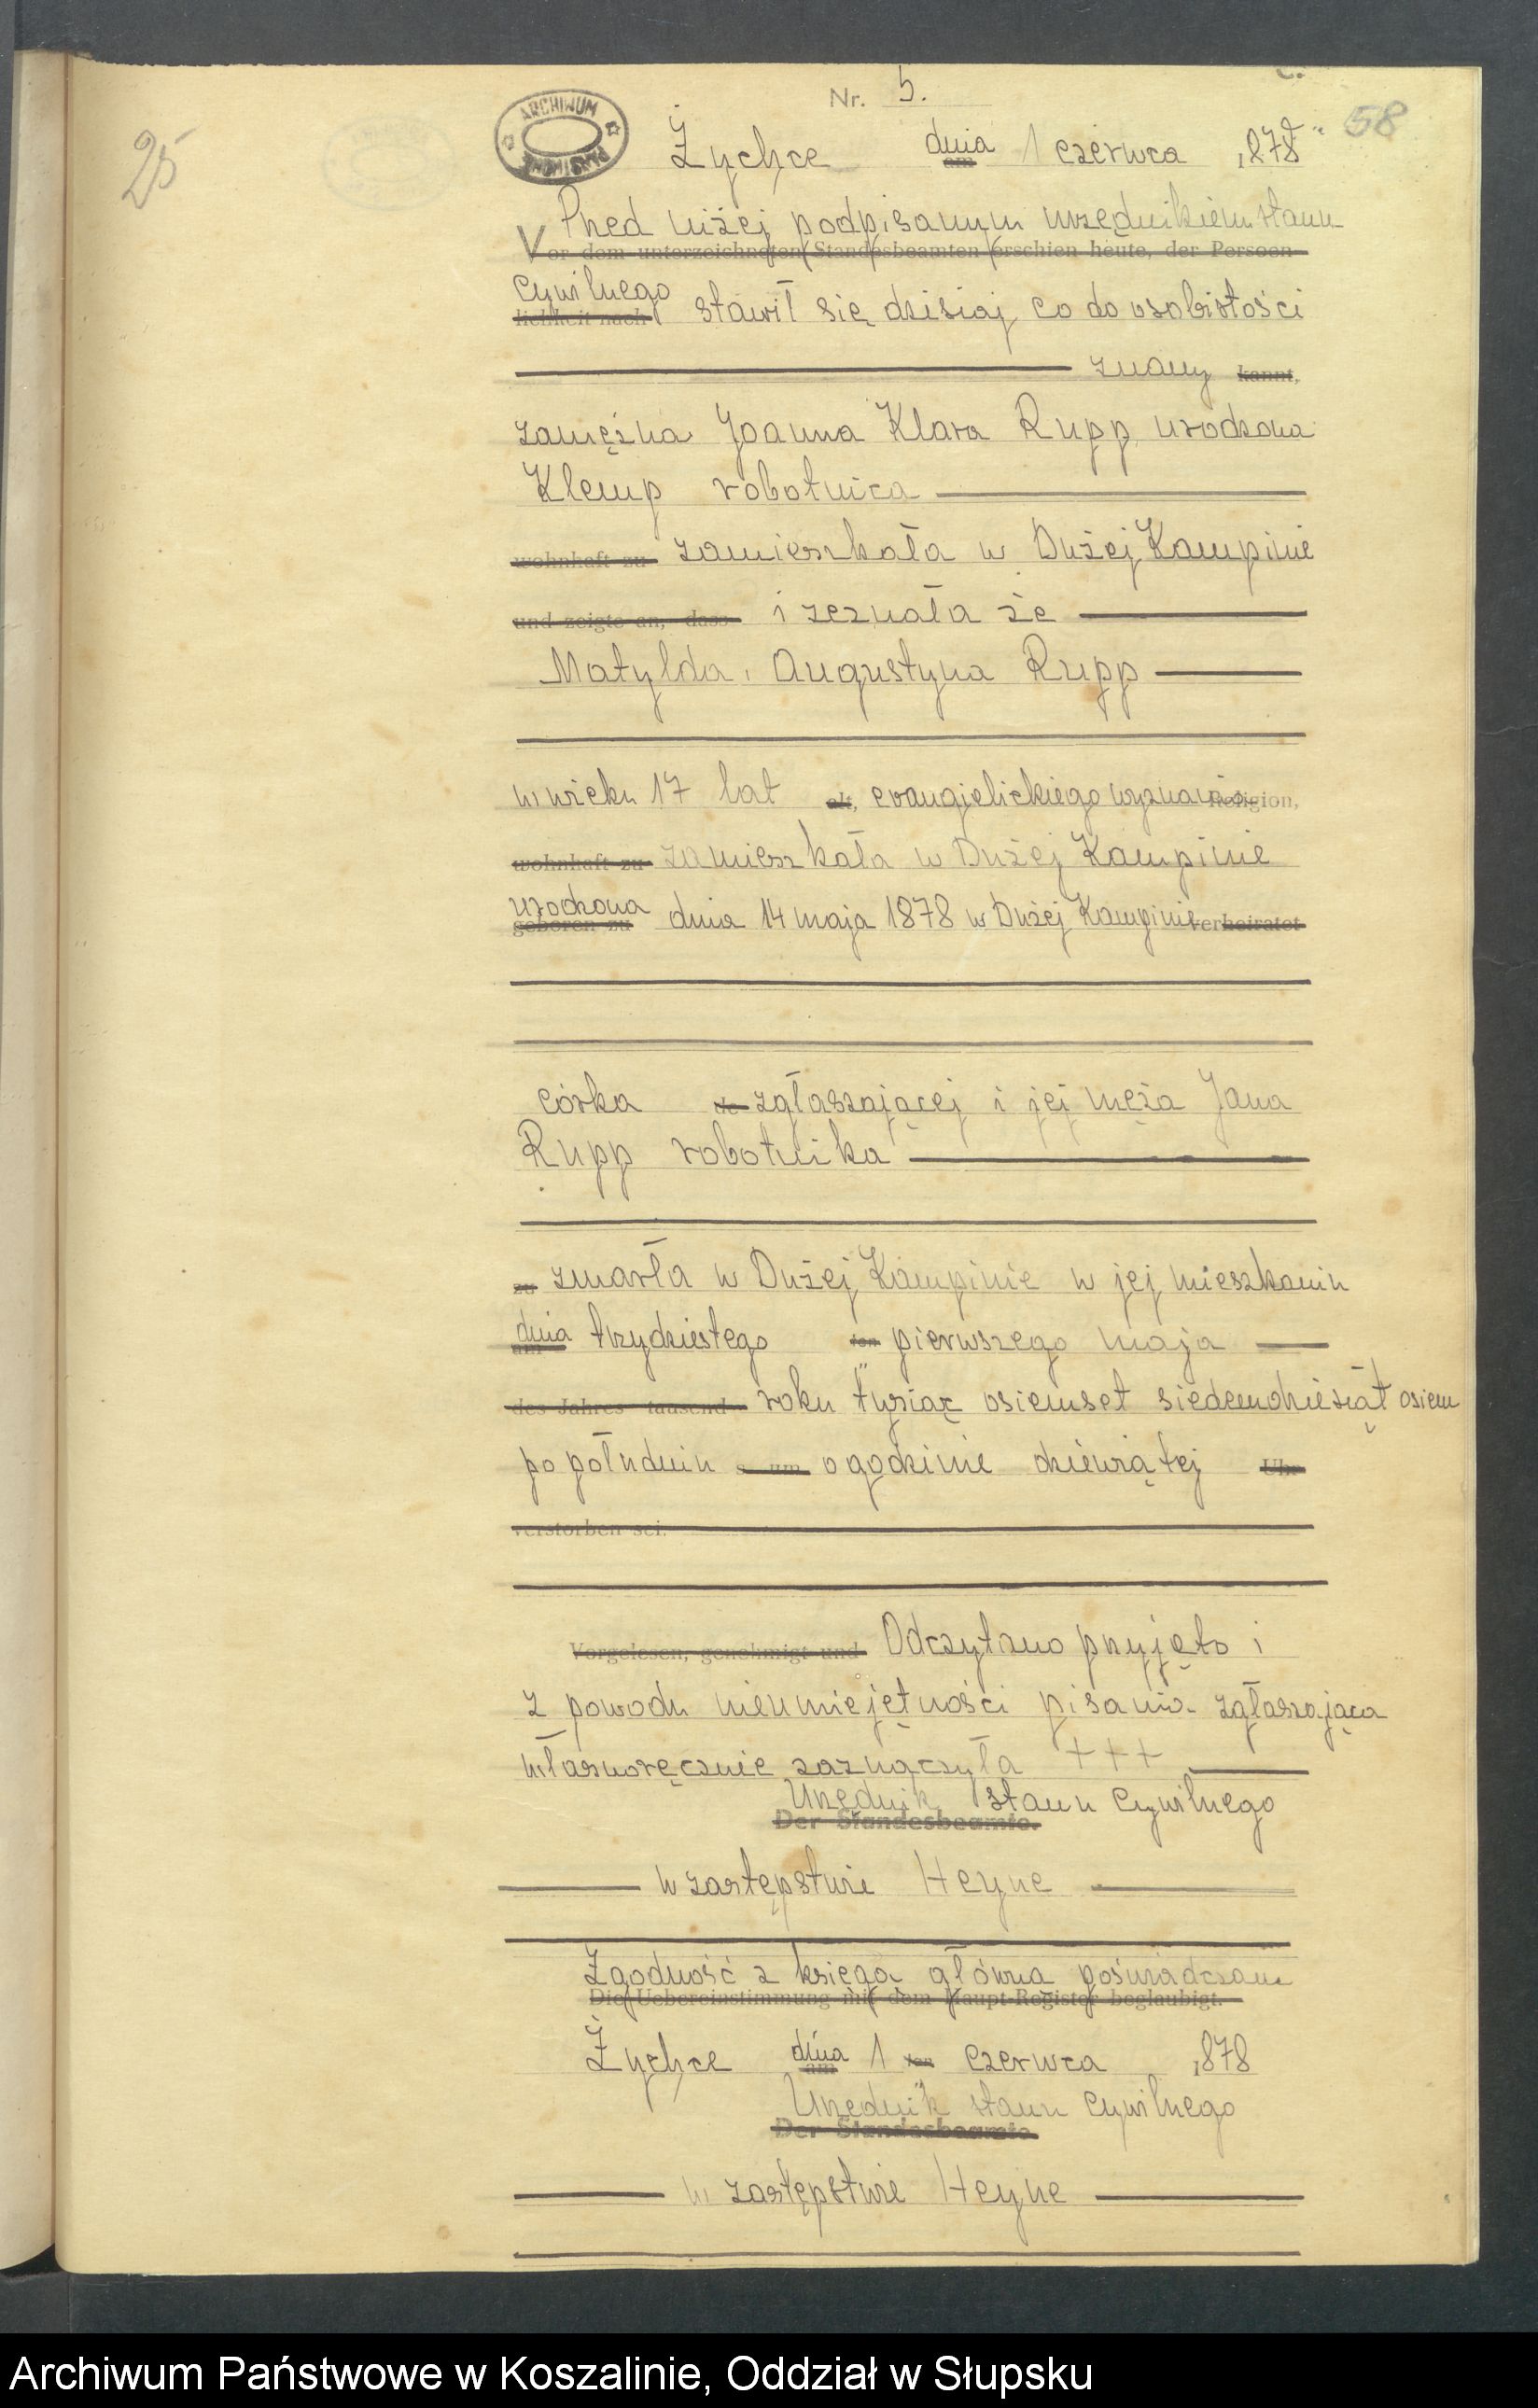 Nr. 5.
25
ARCHIWUM PAŃSTWOWE
58
Żychce dnia am 1 czerwca 1878
Przed niżej podpisanym urzędnikiem stanu
Vor dem unterzeichneten Standesbeamten erschien heute, der Persoen-
cywilnego
lichkeit nach stawił się dzisiaj co do osobistości
znany kannt,
zamężna Joanna Klara Rupp urodzona
Klemp robotnica
wohnhaft zu zamieszkała w Dużej Kampinie
und zeigte an, dass i zeznała że
Matylda Augustyna Rupp
w wieku 17 lat alt, ewangielickiego wyznania Religion,
wohnhaft zu zamieszkała w Dużej Kampinie
urodzona
geboren zu dnia 14 maja 1878 w Dużej Kampinie verheiratet
córka zgłaszającej i jej męża Jana
Rupp robotnika
zu zmarła w Dużej Kampinie w jej mieszkaniu
dnia am trzydziestego ten pierwszego maja
des Jahres tausend roku tysiąc osiemset siedemdziesiąt osiem
po południu um o godzinie dziewiątej Uhr
verstorben sei.
Vorgelesen, genehmigt und Odczytano przyjęto i
z powodu nieumiejętności pisania zgłaszająca
własnoręcznie zaznaczyła +++
Urzędnik stanu cywilnego
Der Standesbeamte.
w zastępstwie Heyne
Zgodność z księgą główną poświadczam
Die Uebereinstimmung mit dem Haupt-Register beglaubigt.
Żychce dnia am 1 ten czerwca 1878
Urzędnik stanu cywilnego
Der Standesbeamte
w zastępstwie Heyne
Archiwum Państwowe w Koszalinie, Oddział w Słupsku